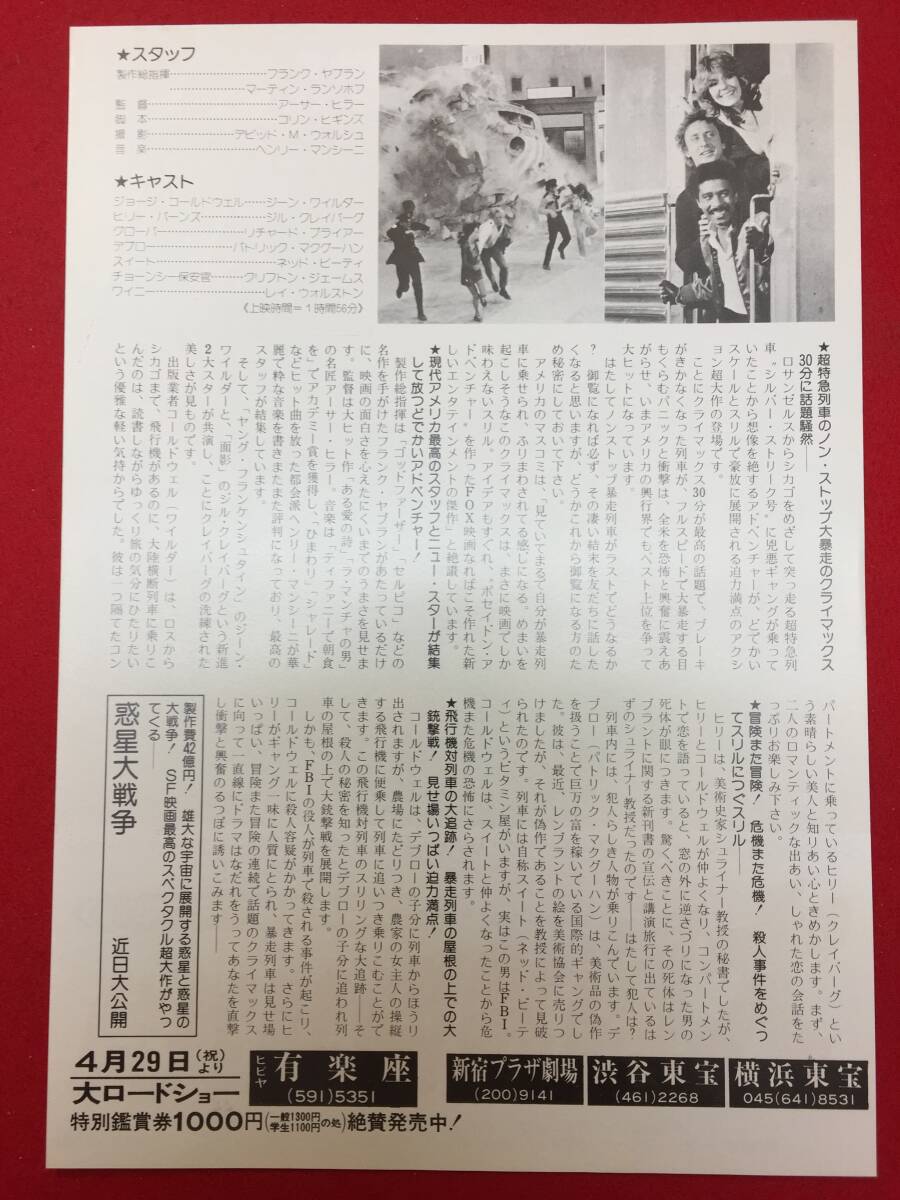 ★スタッフ
製作総指揮……………フランク・ヤブラン
……………マーティン・ランソホフ
監　督……………アーサー・ヒラー
脚　本……………コリン・ヒギンズ
撮　影……………デビッド・M・ウォルシュ
音　楽……………ヘンリー・マンシーニ
★キャスト
ジョージ・コールドウェル……ジーン・ワイルダー
ヒリー・バーンズ……………ジル・クレイバーグ
グローバー……………リチャード・プライアー
デブロー……………パトリック・マクグーハン
スイート……………ネッド・ビーティ
チョーンシー保安官………クリフトン・ジェームス
ワイニー……………レイ・ウォルストン
《上映時間＝1時間56分》
★超特急列車のノン・ストップ大暴走のクライマックス
30分に話題騒然――
ロサンゼルスからシカゴをめざして突っ走る超特急列
車〝シルバー・ストリーク号〟に兇悪ギャングが乗って
いたことから想像を絶するアドベンチャーが、どでかい
スケールとスリルで豪放に展開される迫力満点のアクシ
ョン超大作の登場です。
ことにクライマックス30分が最高の話題で、ブレーキ
がきかなくなった列車が、フルスピードで大暴走する目
もくらむパニックと衝撃は、全米を恐怖と興奮に震えあ
がらせ、いまアメリカの興行界でもベスト上位を争って
大ヒットになっています。
はたしてノンストップ暴走列車がラストでどうなるか
？　御覧になれば必ず、その凄い結末を友だちに話した
くなると思いますが、どうかこれから御覧になる方のた
め秘密にしておいて下さい。
アメリカのマスコミは、〝見ていてまるで自分が暴走列
車に乗せられ、ふりまわされてる感じになる。めまいを
起こしそうなこのクライマックスは、まさに映画でしか
味わえないスリル。アイデアもすぐれ、〝ポセイドン・ア
ドベンチャー〟を作ったFOX映画なればこそ作れた新
しいエンタテインメントの傑作〟と絶讃しています。
★現代アメリカ最高のスタッフとニュー・スターが結集
して放つどでかいアドベンチャー！
製作総指揮は「ゴッドファーザー」「セルピコ」などの
名作を手がけたフランク・ヤブランがあたっているだけ
に、映画の面白さを心えたにくいまでのうまさを見せま
す。監督は大ヒット作「ある愛の詩」「ラ・マンチャの男」
の名匠アーサー・ヒラー。音楽は、「ティファニーで朝食
を」でアカデミー賞を獲得し、「ひまわり」「シャレード」
などヒット曲を放った都会派ヘンリー・マンシーニが華
麗で粋な音楽を書きまたまた評判になっており、最高の
スタッフが結集しています。
そして、「ヤング・フランケンシュタイン」のジーン・
ワイルダーと、「面影」のジル・クレイバーグという新進
2大スターが共演し、ことにクレイバーグの洗練された
美しさが見ものです。
出版業者コールドウェル（ワイルダー）は、ロスから
シカゴまで、飛行機があるのに、大陸横断列車に乗りこ
んだのは、読書しながらゆっくり旅の気分にひたりたい
という優雅な軽い気持からでした。彼は一つ隔てたコン
パートメントに乗っているヒリー（クレイバーグ）とい
う素晴らしい美人と知りあい心ときめかします。まず、
二人のロマンティックな出あい、しゃれた恋の会話をた
っぷりお楽しみ下さい。
★冒険また冒険！　危機また危機！　殺人事件をめぐっ
てスリルにつぐスリル――
ヒリーは、美術史家シュライナー教授の秘書でしたが、
ヒリーとコールドウェルが仲よくなり、コンパートメン
トで恋を語っていると、窓の外に逆さづりになった男の
死体が眼につきます。驚くべきことに、その死体はレン
ブラントに関する新刊書の宣伝と講演旅行に出ているは
ずのシュライナー教授だったのです――はたして犯人は？
列車内には、犯人らしき人物が乗りこんでいます。デ
ブロー（パトリック・マクグーハン）は、美術品の偽作
を扱うことで巨万の富を稼いでいる国際的ギャングでし
た。彼は、最近、レンブラントの絵を美術協会に売りつ
けましたが、それが偽作であることを教授によって見破
られたのです。列車には自称スイート（ネッド・ビーテ
ィ）というビタミン屋がいますが、実はこの男はFBI。
コールドウェルは、スイートと仲よくなったことから危
機また危機の恐怖にさらされます。
★飛行機対列車の大追跡！　暴走列車の屋根の上での大
銃撃戦！　見せ場いっぱい迫力満点！
コールドウェルは、デブローの子分に列車からほうり
出されますが、農場にたどりつき、農家の女主人の操縦
する飛行機に便乗して列車に追いつき乗りこむことがで
きます。この飛行機対列車のスリリングな大追跡――そ
して、殺人の秘密を知ったとデブローの子分に追われ列
車の屋根の上で大銃撃戦を展開します。
しかも、FBIの役人が列車で殺される事件が起こり、
コールドウェルに殺人容疑がかかってきます。さらにヒ
リーがギャング一味に人質にとられ、暴走列車は見せ場
いっぱい、冒険また冒険の連続で話題のクライマックス
に向って一直線にドラマはなだれをうってあなたを直撃
し衝撃と興奮のるつぼに誘いこみます
製作費42億円！　雄大な宇宙に展開する惑星と惑星の
大戦争！　SF映画最高のスペクタクル超大作がやっ
てくる――
惑星大戦争
近日大公開
4月29日(祝)より
大ロードショー
ヒビヤ 有楽座
(591)5351
新宿プラザ劇場
(200)9141
渋谷東宝
(461)2268
横浜東宝
045(641)8531
特別鑑賞券1000円(一般1300円 学生1100円の処)絶賛発売中！